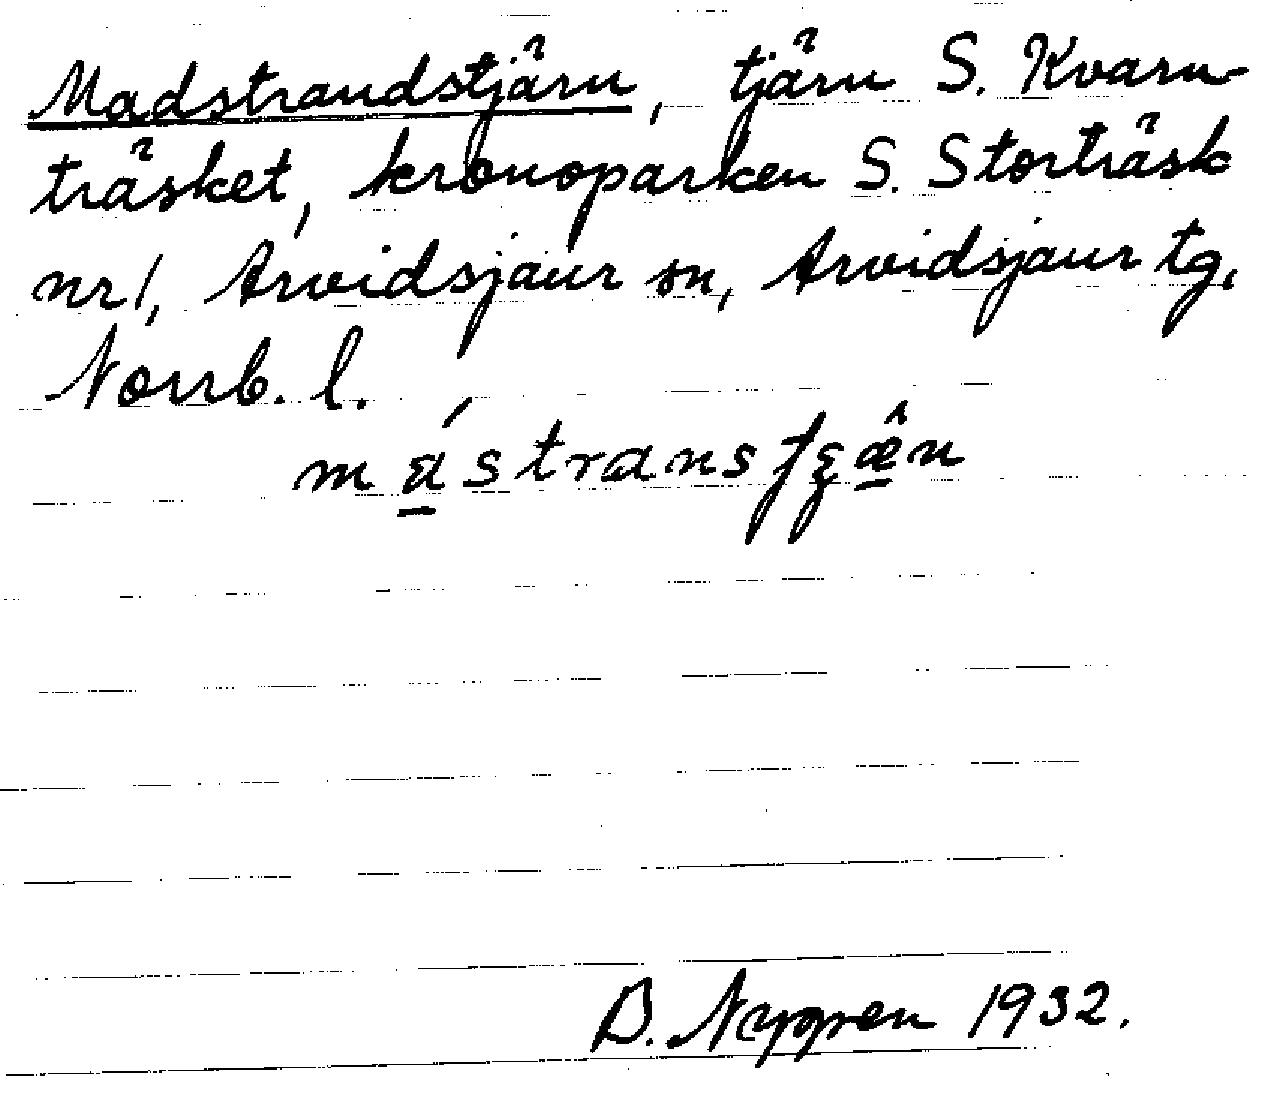 Madstrandstjärn, tjärn S. Kvarn-
träsket, kronoparken S. Storträsk
nr 1, Arvidsjaur sn, Arvidsjaur tg,
Norrb. l.
B. Nygren 1932.